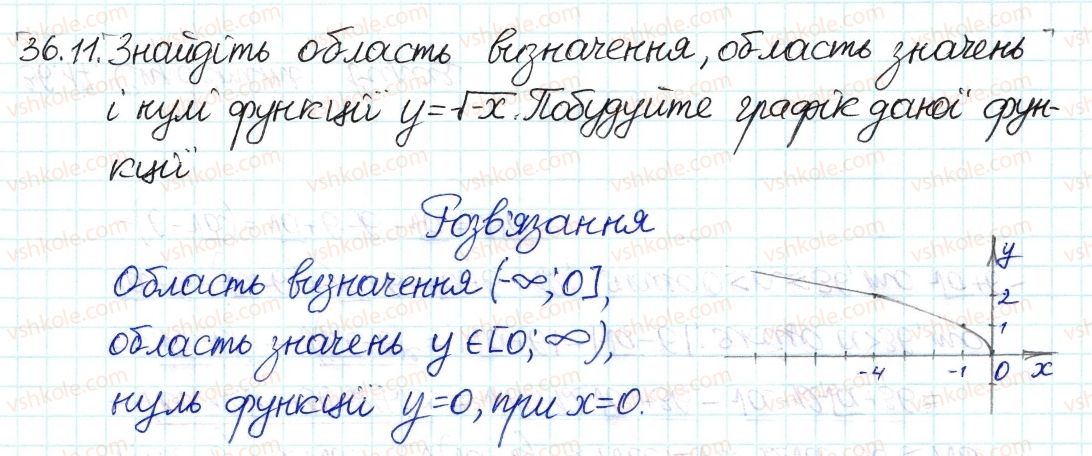 36.11. Знайдіть область визначення, область значень
і нулі функції y=√-x. Побудуйте графік даної фун-
кції
Розв'язання
Область визначення (-∞; 0],
область значень y∈[0; ∞),
нуль функції y=0, при x=0.
y
2
1
-4 -1 0 x